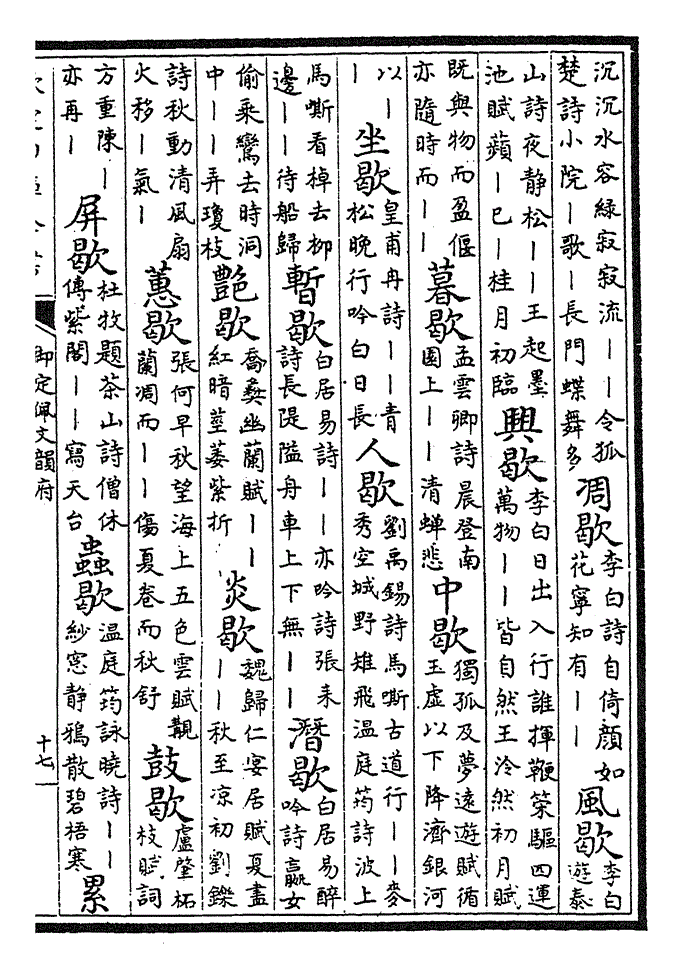 沉沉水容綠寂寂流丨丨令狐
楚詩小院丨歌丨長門蝶舞多
凋歇
李白詩自倚顔如
花寧知有丨丨
風歇
李白
遊泰
山詩夜静松丨丨王起墨
池賦蘋丨巳丨桂月初臨
興歇
李白日出入行誰揮鞭策驅四運
萬物丨丨皆自然王泠然初月賦
既與物而盈偃
亦隨時而丨丨
暮歇
孟雲卿詩晨登南
園上丨丨清蟬悲
中歇
獨孤及夢遠遊賦循
玉虛以下降濟銀河
以丨
丨
坐歇
皇甫冉詩丨丨青
松晚行吟白日長
人歇
劉禹錫詩馬嘶古道行丨丨麥
秀空城野雉飛温庭筠詩波上
馬嘶看棹去柳
邊丨丨待船歸
暫歇
白居易詩丨丨亦吟詩張耒
詩長隄隘舟車上下無丨丨
潛歇
白居易醉
吟詩嬴女
偷乘鸞去時洞
中丨丨弄瓊枝
艷歇
喬彝幽蘭賦丨丨
紅暗莖萎紫折
炎歇
魏歸仁宴居賦夏盡
丨丨秋至凉初劉鑠
詩秋動清風扇
火移丨氣丨
蕙歇
張何早秋望海上五色雲賦觀
蘭凋而丨丨傷夏卷而秋舒
鼓歇
盧肇柘
枝賦詞
方重陳丨
亦再丨
屏歇
杜牧題茶山詩僧休
傳紫閣丨丨寫天台
蟲歇
温庭筠詠曉詩丨丨
紗窓静鴉散碧梧寒
累
御定佩文韻府
十七